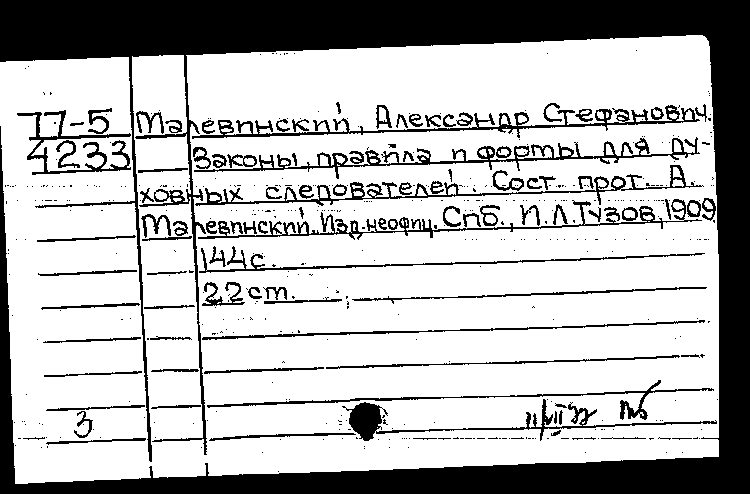 77-5 Малевинский, Александр Стефанович.
4233 Законы, правила и формы для ду-
ховных следователей. Сост. прот. А.
Малевинский. Изд. неофиц. Спб., И.Л.Тузов, 1909
144 с.
22 ст.
3 11/VII 77